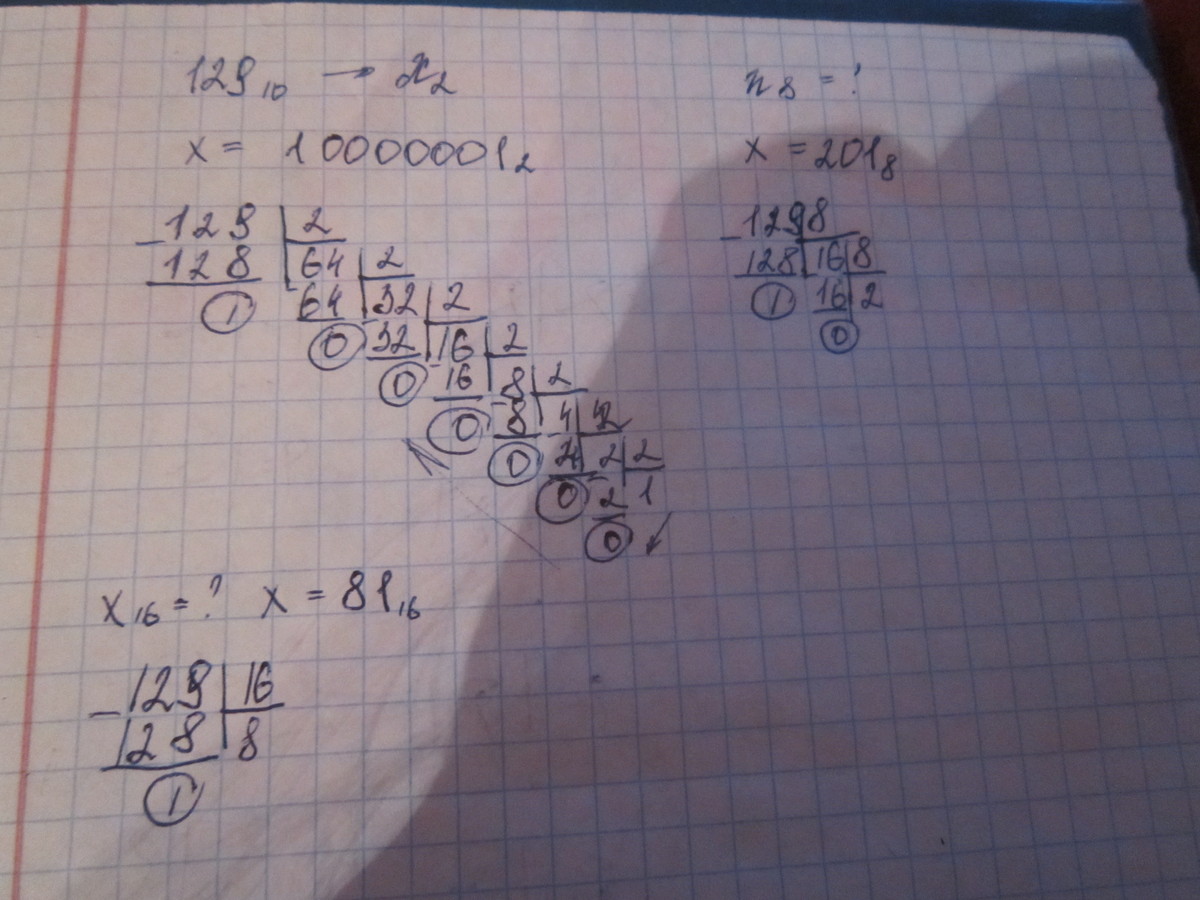 129₁₀ → x₂
x = 10000001₂
x₈ = ?
x = 201₈
129 | 2
128 | 64 | 2
1 64 | 32 | 2
0 32 | 16 | 2
0 16 | 8 | 2
0 8 | 4 | 2
0 4 | 2 | 2
0 2 | 1
0
129 | 8
128 | 16 | 8
1 16 | 2
0
x₁₆ = ? x = 81₁₆
129 | 16
128 | 8
1